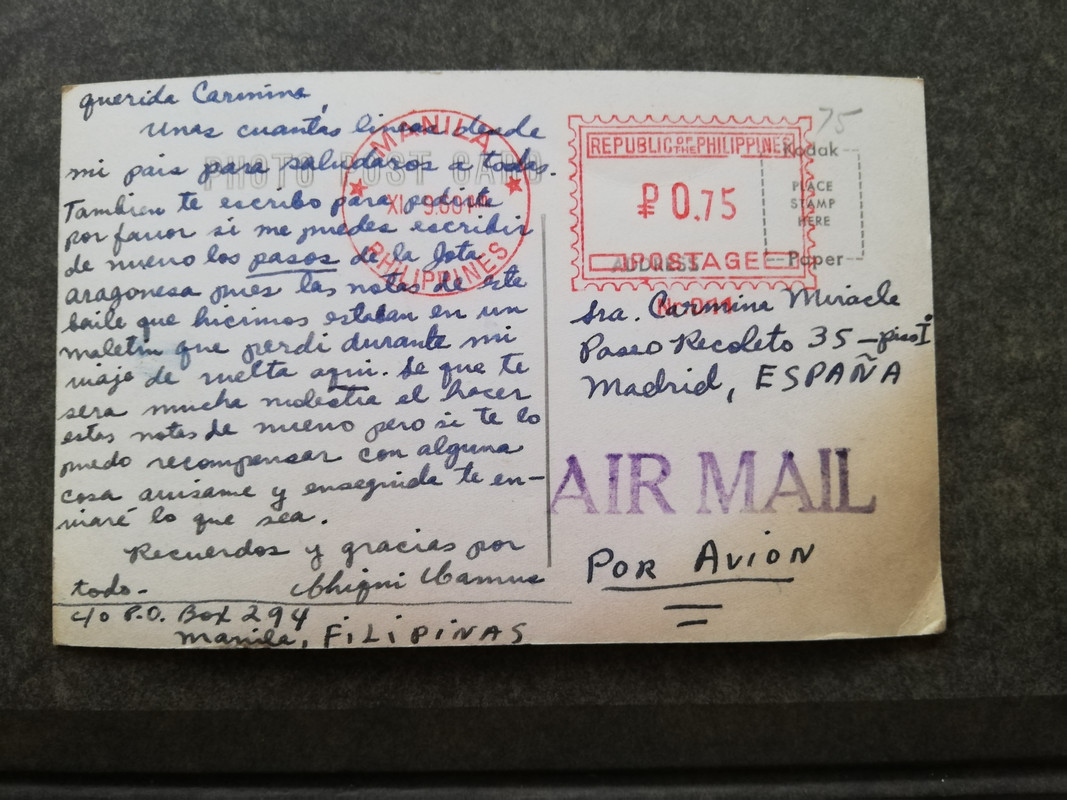 querida Carmina,
Unas cuantas lineas desde
mi pais para saludaros a todas.
Tambien te escribo para pedirte
por favor si me puedes escribir
de nuevo los pasos de la Jota
aragonesa pues las notas de este
baile que hicimos estaban en un
maletin que perdi durante mi
viaje de vuelta aqui. Se que te
sera mucha molestia el hacer
estas notas de nuevo pero si te lo
puedo recompensar con alguna
cosa avisame y enseguida te en-
viaré lo que sea.
Recuerdos y gracias por
todo.-
c/o P.O. Box 294
Manila, FILIPINAS
PHOTO POST CARD
MANILA
PHILIPPINES
75
REPUBLIC OF THE PHILIPPINES
₱ 0.75
POSTAGE
Kodak
PLACE
STAMP
HERE
Paper
ADDRESS
Sra. Carmina Miracle
Paseo Recoleto 35 - piso I
Madrid, ESPAÑA
AIR MAIL
POR AVION